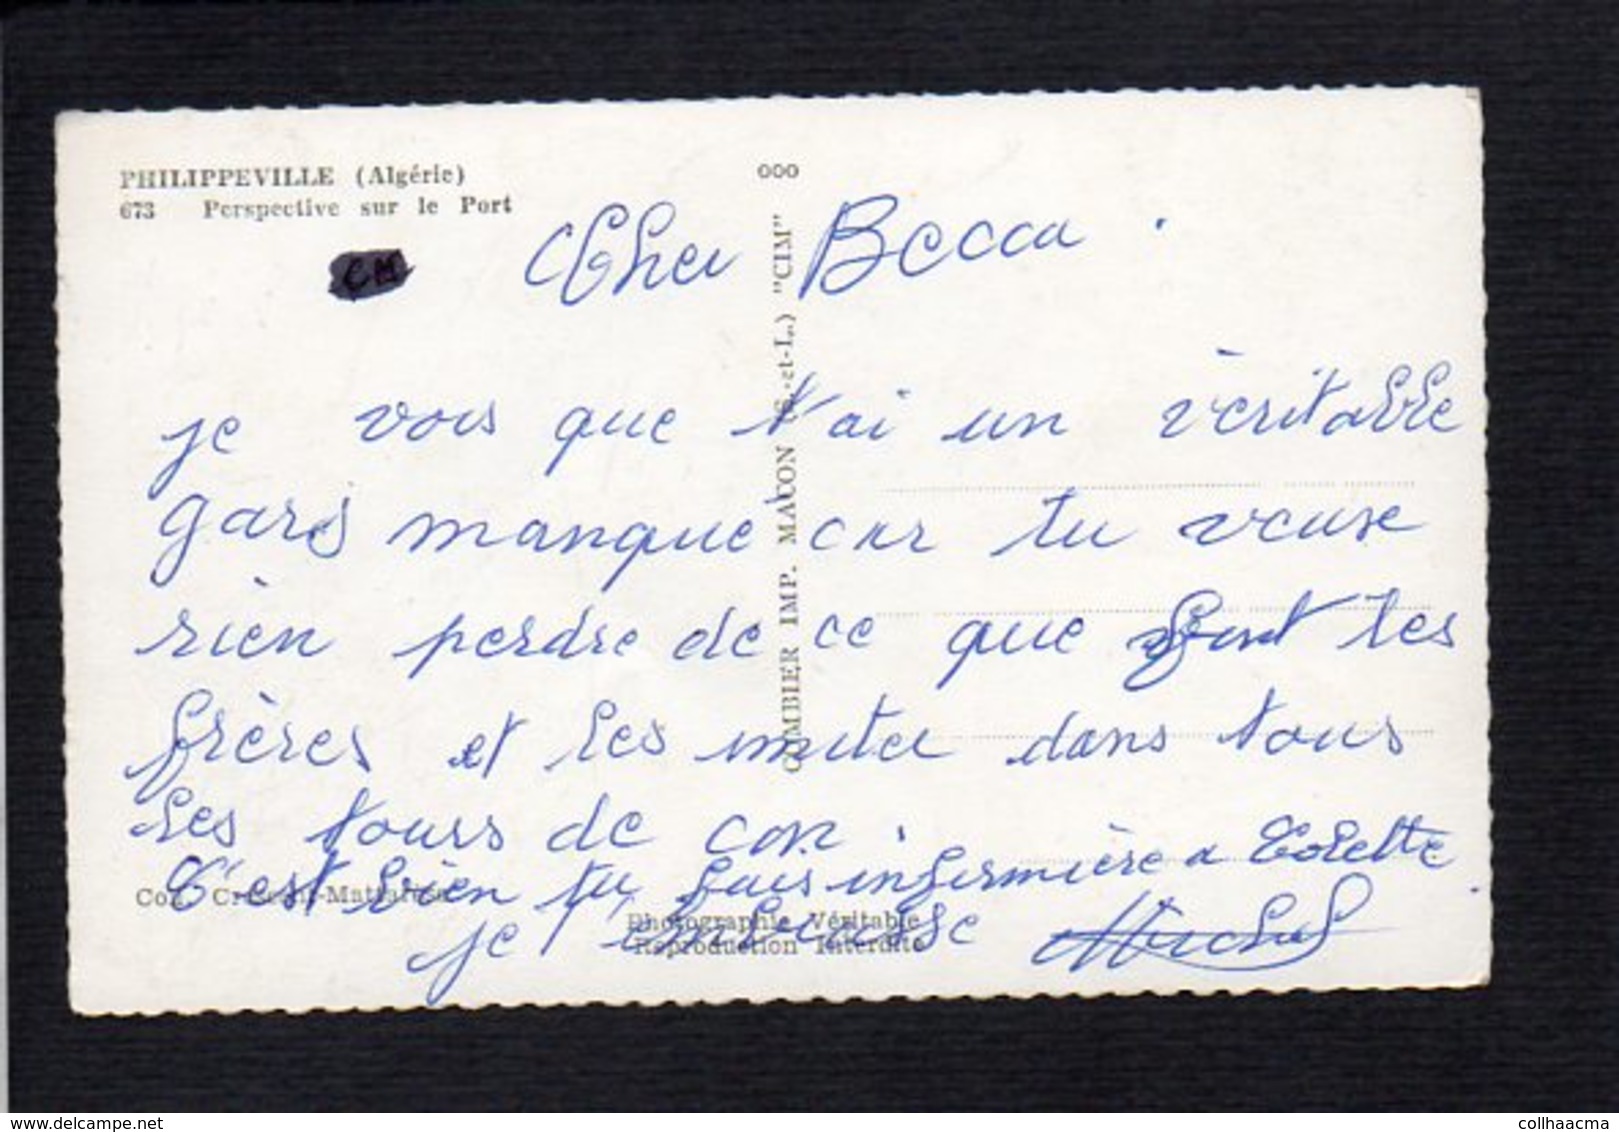 PHILIPPEVILLE (Algérie)
673 Perspective sur le Port
ooo
CM
Cher Becca .
je vois que t'ai un vèritable
gars manqué car tu veuse
rien perdre de ce que font tes
frères et les imiter dans tous
les tours de con
C'est bien tu fais infirmière a Colette
je t'embrasse Michel
COMBIER IMP. MACON (S.-et-L.) "CIM"
Photographie Véritable
Reproduction Interdite
delcampe.net
collhaacma